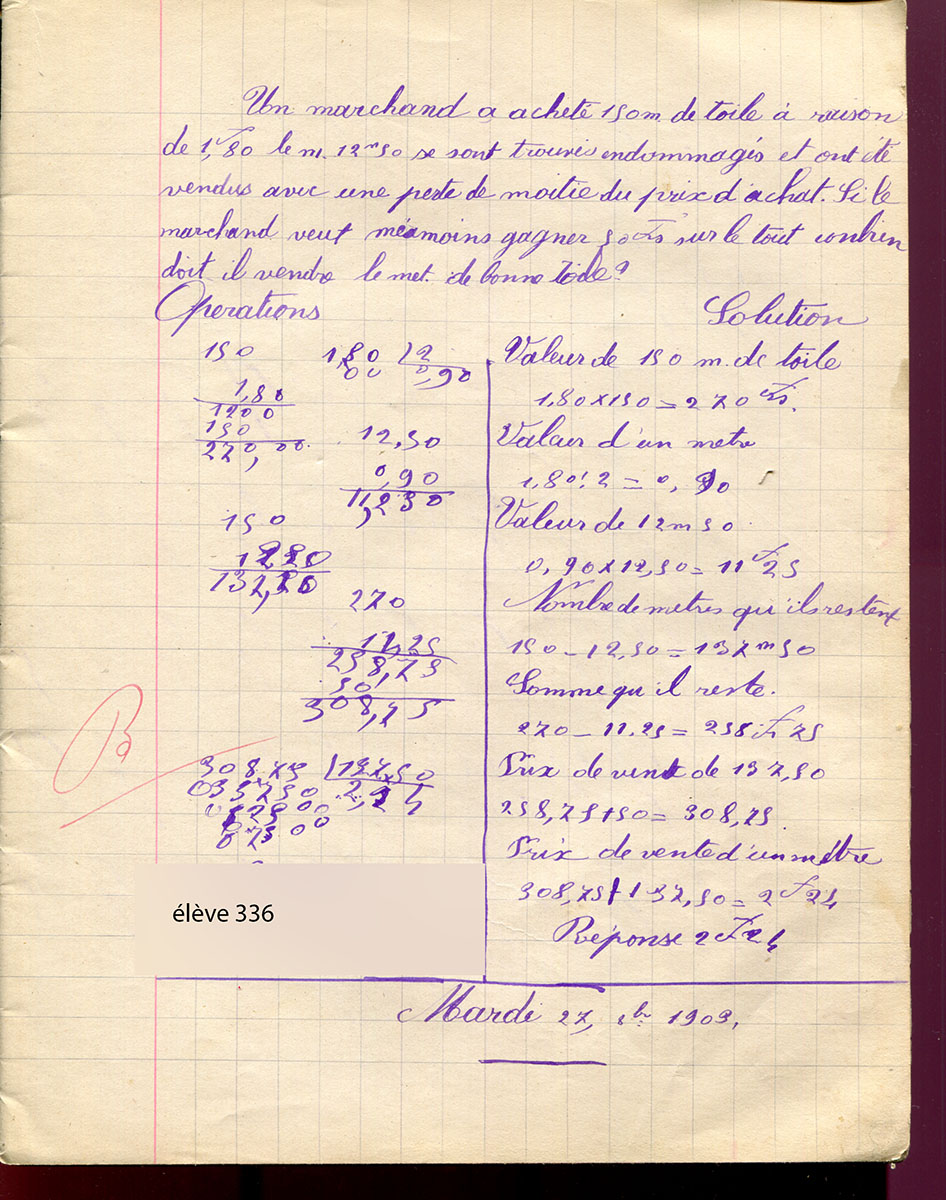 Un marchand a acheté 150m de toile à raison
de 1,F80 le m. 12m50 se sont trouvés endommagés et ont été
vendus avec une perte de moitié du prix d'achat. Si le
marchand veut néamoins gagner 50 Frs sur le tout combien
doit il vendre le met. de bonne toile?
Operations
150
1,80
1200
150
270,00
1,80 | 2
00 0,90
12,50
0,90
11,250
150
270
11,25
258,75
50
308,75
308,75 | 137,50
Solution
Valeur de 150 m. de toile
1,80 x 150 = 270 Frs.
Valeur d'un metre
1,80 : 2 = 0,90
Valeur de 12m50
0,90 x 12,50 = 11F25
Nombre de metres qu'ils restent
150 - 12,50 = 137m50
Somme qu'il reste.
270 - 11.25 = 258F75
Prix de vent de 137,50
258,75 + 50 = 308,75
Prix de vente d'un métre
308,75 / 137,50 = 2F24
Réponse 2F24
B
élève 336
Mardi 27, 1909.